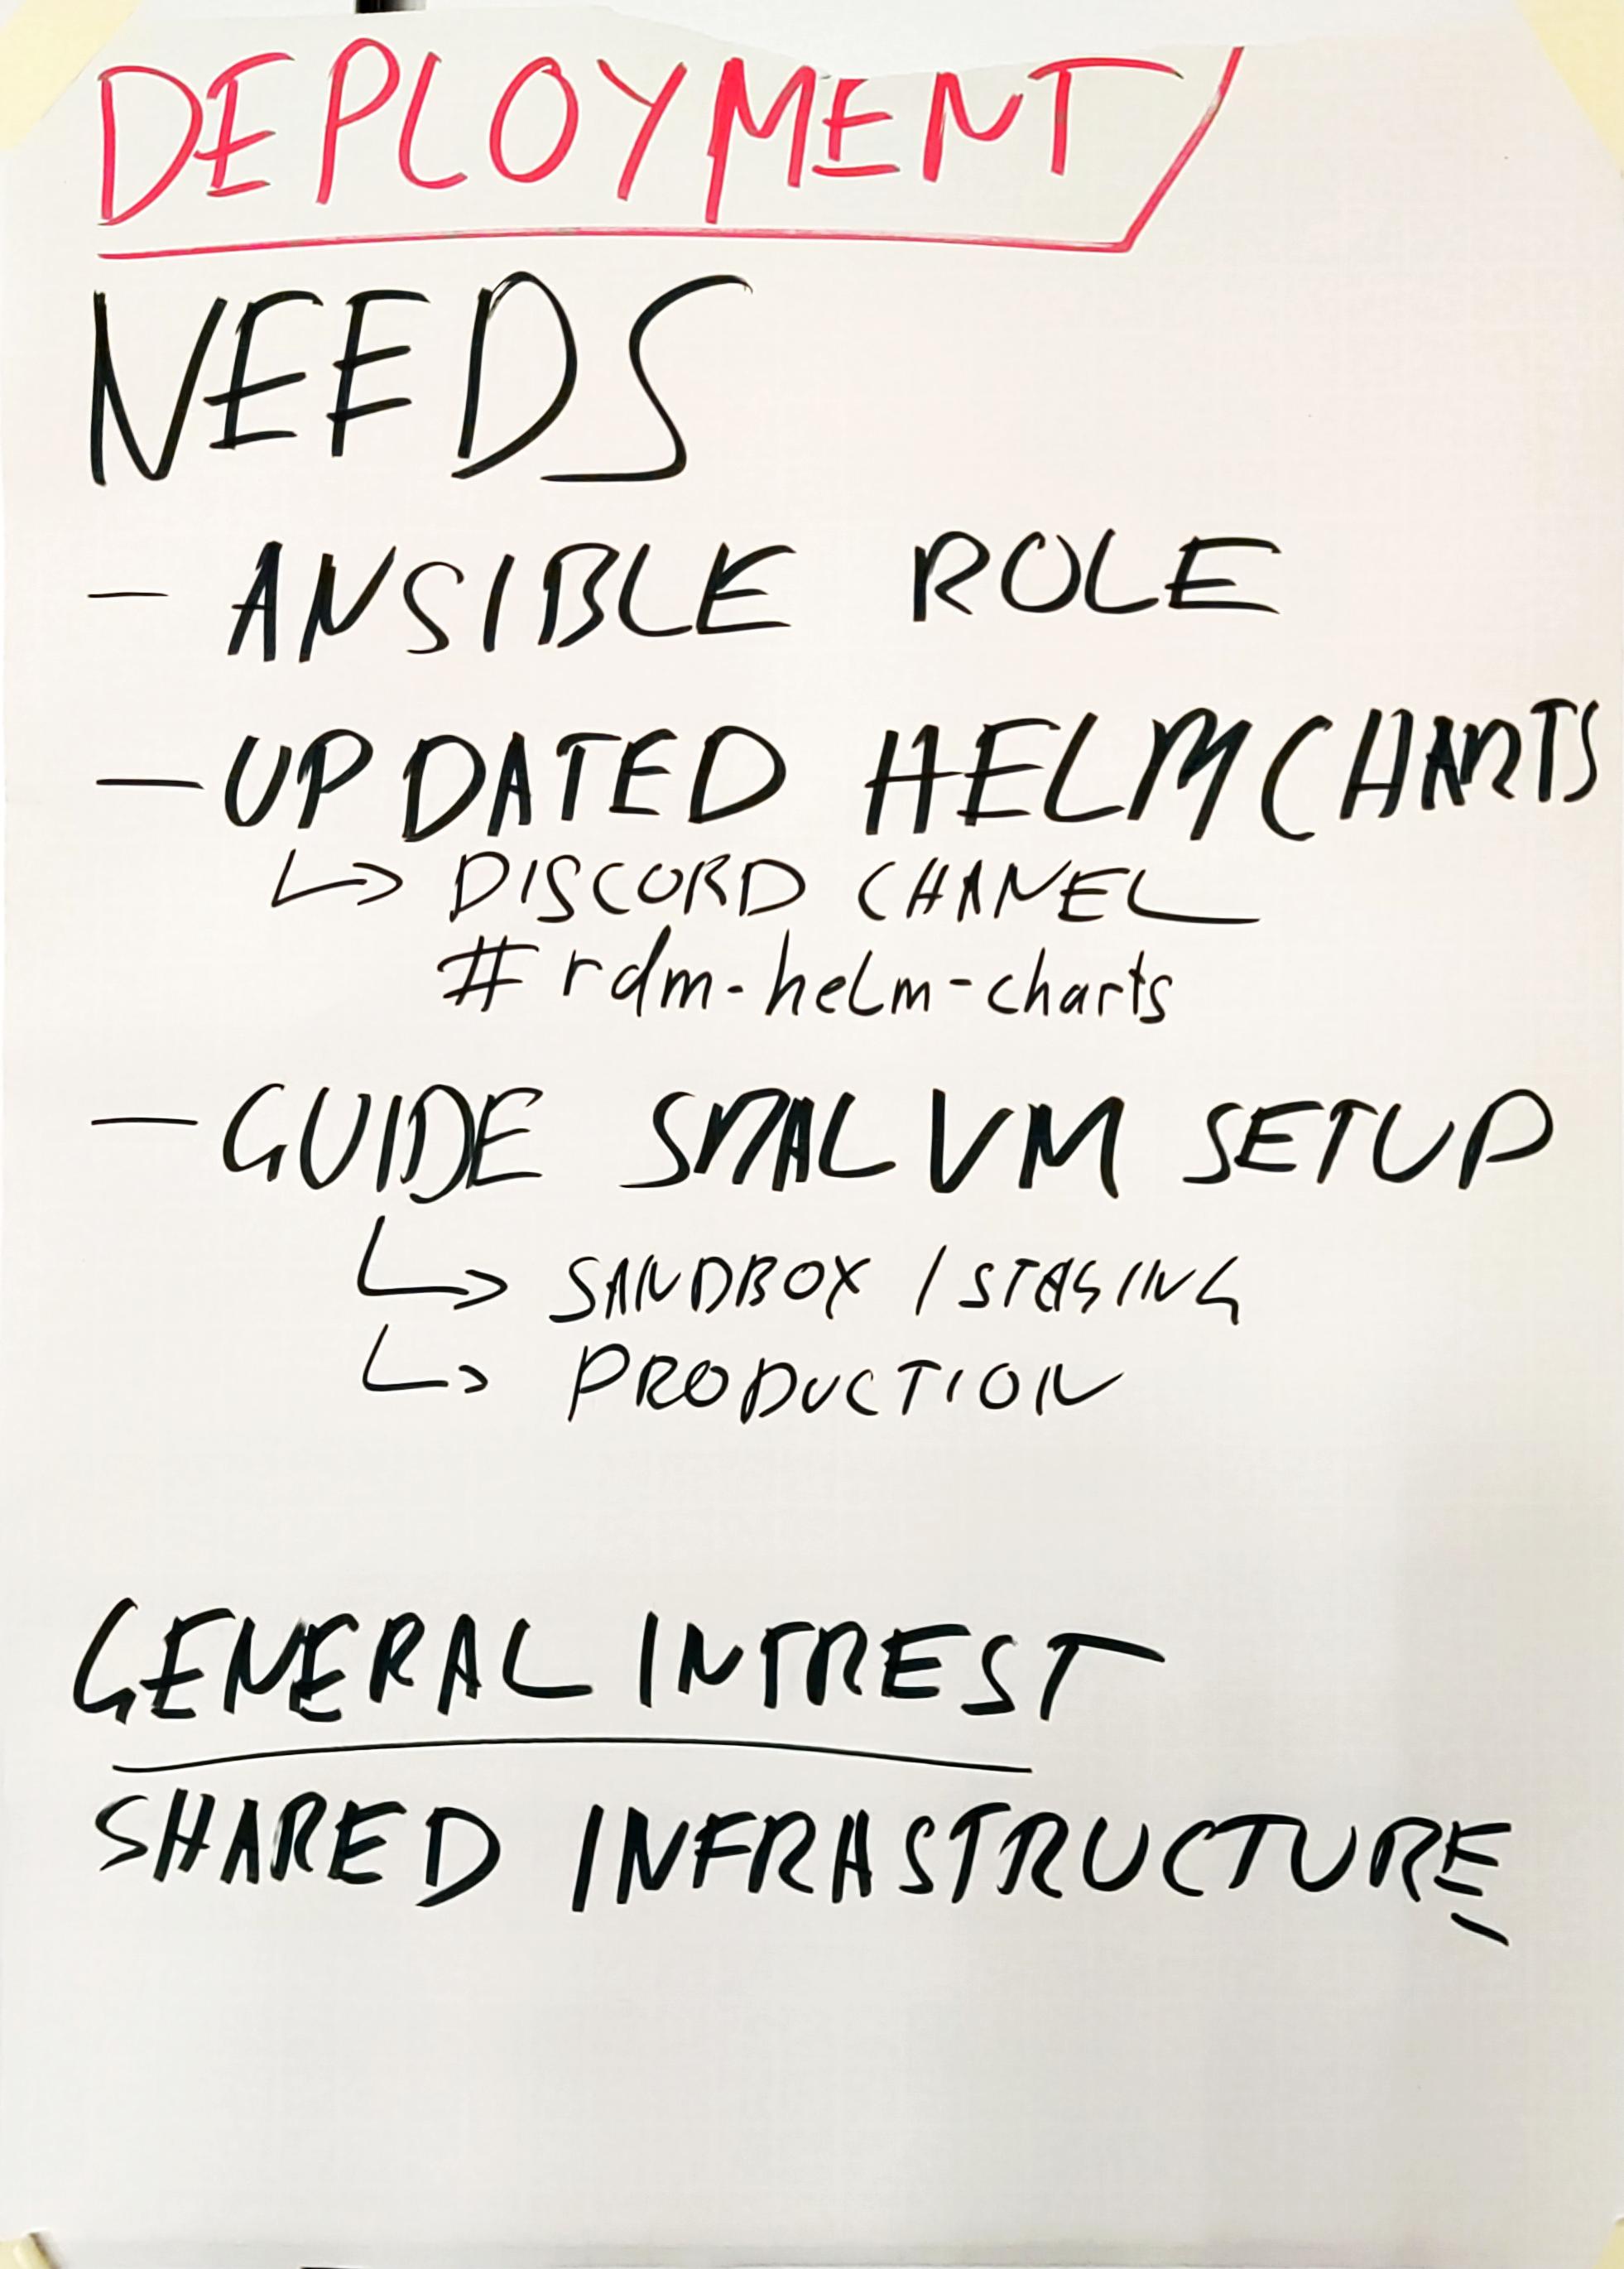 DEPLOYMENT
NEEDS
- ANSIBLE ROLE
- UPDATED HELMCHARTS
↳ DISCORD CHANEL
#rdm-helm-charts
- GUIDE SMAL VM SETUP
↳ SANDBOX / STAGING
↳ PRODUCTION
GENERAL INTREST
SHARED INFRASTRUCTURE